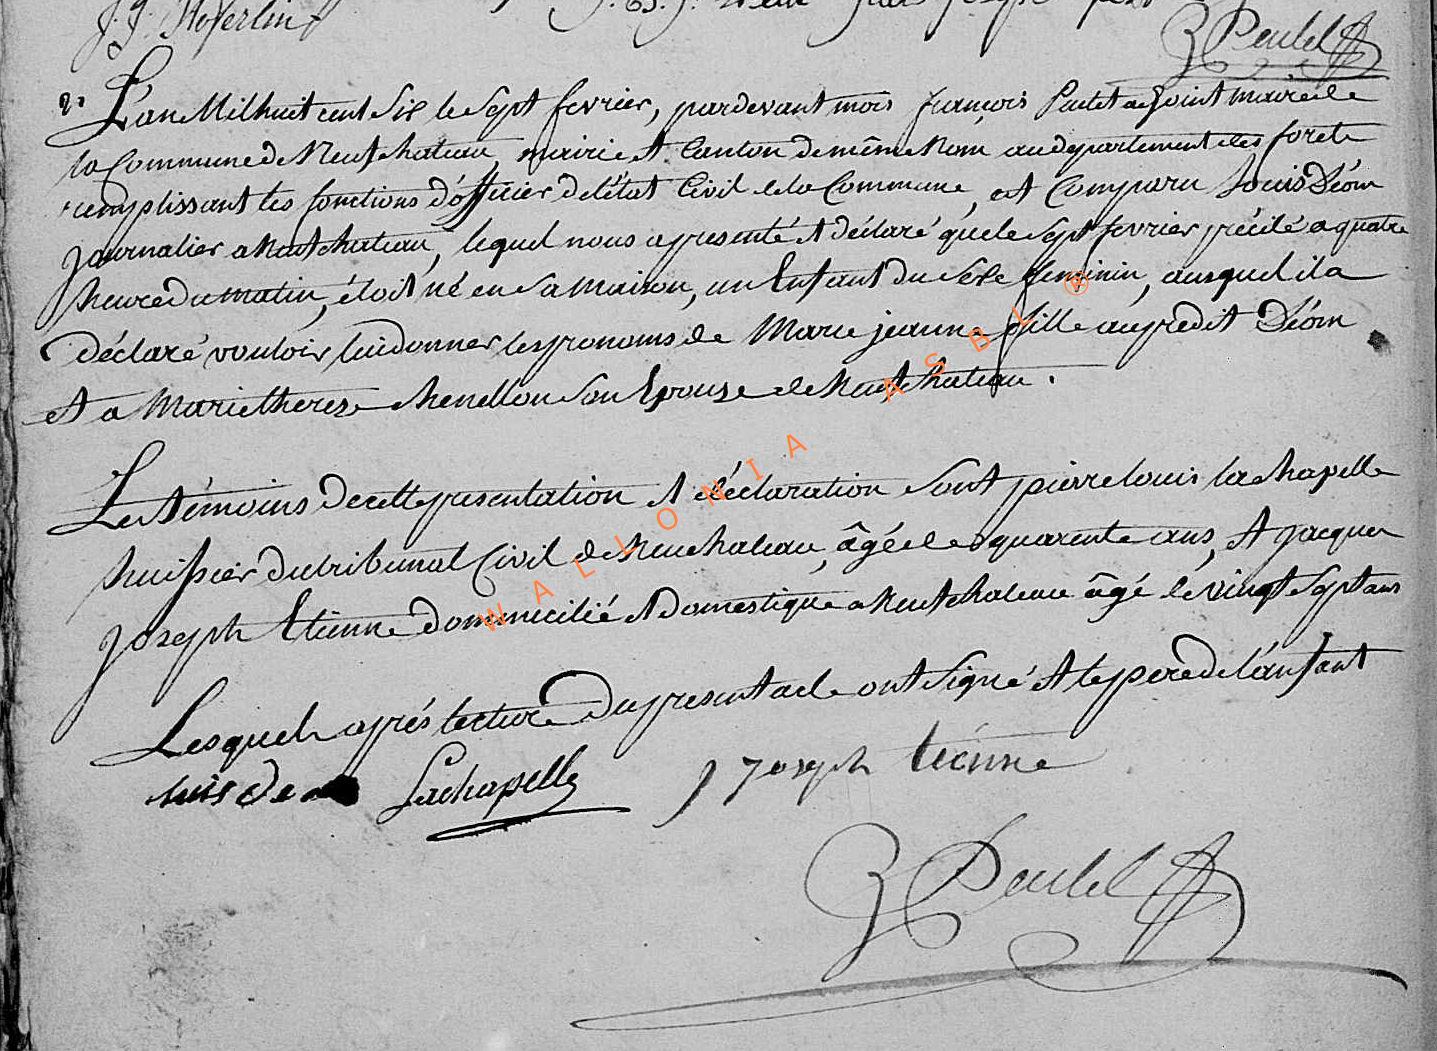 J. J. Hoferlin
Paulet
2. L'an Mil huit cent Six le Sept fevrier, pardevant nous françois Paulet adjoint maire de
la Commune de Neufchateau, mairie et Canton de même Nom au departement des forets
remplissant les fonctions d'officier de l'état Civil de la Commune, est Comparu Louis Déom
journalier a Neufchateau, lequel nous a presenté et déclaré que le Sept fevrier précité a quatre
heure du matin, étoit né en Sa maison, un Enfant du Sexe feminin, auquel il a
déclaré vouloir lui donner les pronoms de Marie jeanne fille au predit Déom
et a Marie therese henellon Son Epouse de Neufchateau.
Les témoins de cette presentation et déclaration Sont pierre louis lachapelle
huissier du tribunal Civil de Neuchateau, âgé de quarente ans, et jacque
joseph Etienne domicilié et domestique a Neufchateau âgé de vingt Sept ans
Lesquels après lecture du present acte ont Signé et le pere de l'anfant
Lachapelle
J Joseph tienne
Paulet
WALLONIA ASBL ®